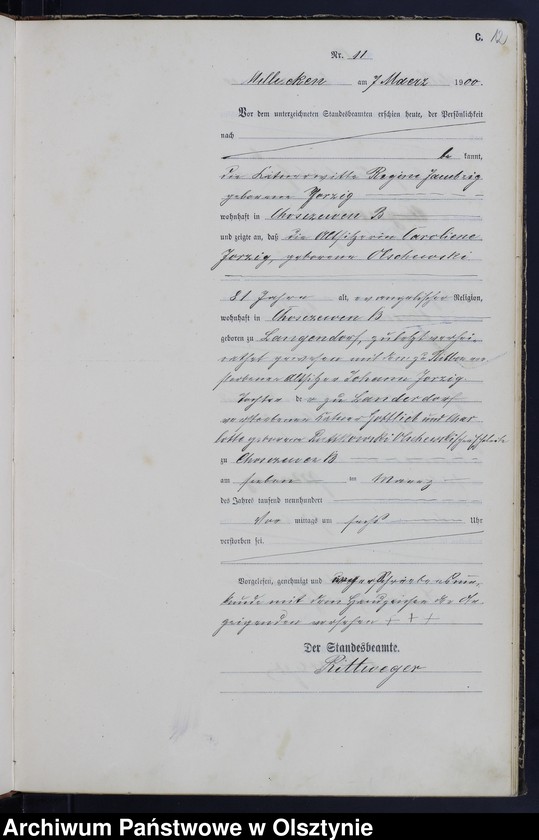 C. 12
Nr. 11
Millucken am 7 Maerz 1900.
Vor dem unterzeichneten Standesbeamten erschien heute, der Persönlichkeit
nach
be kannt,
die Regine
geborene Jorzig
wohnhaft in Chosczewen B
und zeigte an, daß die Altsitzerin Caroliene
Jorzig, geborene Olschewski
81 Jahre alt, evangelischer Religion,
wohnhaft in Chosczewen B
geboren zu Langendorf, zuletzt verhei-
rathet gewesen mit dem zu ver-
storbenen Altsitzer Johann Jorzig.
Tochter der zu Landerdorf
verstorbenen Gottlieb und Char-
lotte geborene Olschewskischen Eheleute
zu Chosczewen B
am sieben ten Maerz
des Jahres tausend neunhundert
Vor mittags um sechs Uhr
verstorben sei.
Vorgelesen, genehmigt und wegen Schreibensun-
kunde mit dem Handzeichen der An-
zeigenden versehen + + +
Der Standesbeamte.
Rittweger
Archiwum Państwowe w Olsztynie